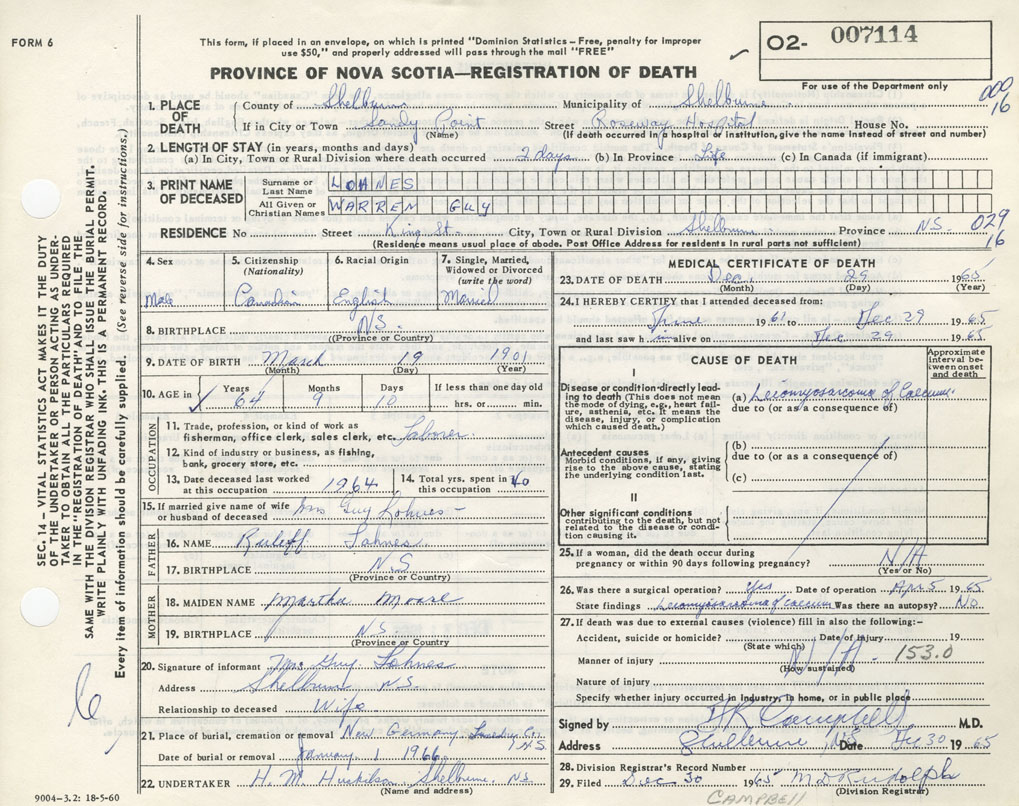 FORM 6
This form, if placed in an envelope, on which is printed "Dominion Statistics - Free, penalty for improper
use $50," and properly addressed will pass through the mail "FREE"
PROVINCE OF NOVA SCOTIA—REGISTRATION OF DEATH
O2- 007114
For use of the Department only
000
16
SEC. 14 – VITAL STATISTICS ACT MAKES IT THE DUTY
OF THE UNDERTAKER OR PERSON ACTING AS UNDER-
TAKER TO OBTAIN ALL THE PARTICULARS REQUIRED
IN THE "REGISTRATION OF DEATH" AND TO FILE THE
SAME WITH THE DIVISION REGISTRAR WHO SHALL ISSUE THE BURIAL PERMIT.
WRITE PLAINLY WITH UNFADING INK. THIS IS A PERMANENT RECORD.
Every item of information should be carefully supplied. (See reverse side for instructions.)
1. PLACE OF DEATH County of Shelburne Municipality of Shelburne
If in City or Town Sandy Point Street Roseway Hospital House No.
(Name) (If death occurred in a hospital or institution, give the name instead of street and number)
2. LENGTH OF STAY (in years, months and days)
(a) In City, Town or Rural Division where death occurred 2 days (b) In Province Life (c) In Canada (if immigrant)
3. PRINT NAME OF DECEASED
Surname or Last Name LOHNES
All Given or Christian Names WARREN GUY
RESIDENCE No Street King St. City, Town or Rural Division Shelburne Province N.S. 029
16
(Residence means usual place of abode. Post Office Address for residents in rural parts not sufficient)
4. Sex Male
5. Citizenship (Nationality) Canadian
6. Racial Origin English
7. Single, Married, Widowed or Divorced (write the word) Married
8. BIRTHPLACE N.S.
(Province or Country)
9. DATE OF BIRTH March 19 1901
(Month) (Day) (Year)
10. AGE in Years 64 Months 9 Days 10 If less than one day old hrs. or min.
OCCUPATION
11. Trade, profession, or kind of work as
fisherman, office clerk, sales clerk, etc. Laborer
12. Kind of industry or business, as fishing,
bank, grocery store, etc.
13. Date deceased last worked at this occupation 1964
14. Total yrs. spent in this occupation 40
15. If married give name of wife
or husband of deceased Mrs Guy Lohnes
FATHER
16. NAME Ruleff Lohnes
17. BIRTHPLACE N.S
(Province or Country)
MOTHER
18. MAIDEN NAME Martha Moore
19. BIRTHPLACE N.S.
(Province or Country
20. Signature of informant Mrs. Guy Lohnes
Address Shelburne N.S.
Relationship to deceased Wife
21. Place of burial, cremation or removal New Germany Lunenburg Co. N.S.
Date of burial or removal January 1 1966
22. UNDERTAKER H. M. Huskilson Shelburne N.S.
(Name and address)
9004-3.2: 18-5-60
6
MEDICAL CERTIFICATE OF DEATH
23. DATE OF DEATH Dec. 29 1965
(Month) (Day) (Year)
24. I HEREBY CERTIFY that I attended deceased from:
June 1961 to Dec 29 1965
and last saw him alive on Dec 29 1965
CAUSE OF DEATH
Approximate interval between onset and death
I
Disease or condition directly lead-
ing to death (This does not mean
the mode of dying, e.g., heart failure,
asthenia, etc. It means the disease,
injury, or complication
which caused death.)
(a) Leiomyosarcoma of Caecum
due to (or as a consequence of)
Antecedent causes
Morbid conditions, if any, giving
rise to the above cause, stating
the underlying condition last.
(b)
due to (or as a consequence of)
(c)
II
Other significant conditions
contributing to the death, but not
related to the disease or condi-
tion causing it.
25. If a woman, did the death occur during
pregnancy or within 90 days following pregnancy? N/A
(Yes or No)
26. Was there a surgical operation? Yes Date of operation Apr 5 1965
State findings Leiomyosarcoma of caecum Was there an autopsy? No
27. If death was due to external causes (violence) fill in also the following:-
Accident, suicide or homicide? Date of injury 19
(State which)
Manner of injury N/A 153.0
(How sustained)
Nature of injury
Specify whether injury occurred in industry, in home, or in public place
Signed by Campbell M.D.
Address Shelburne NS Date Dec 30 1965
28. Division Registrar's Record Number
29. Filed Dec. 30 1965 M D Rudolph
(Division Registrar)
CAMPBELL